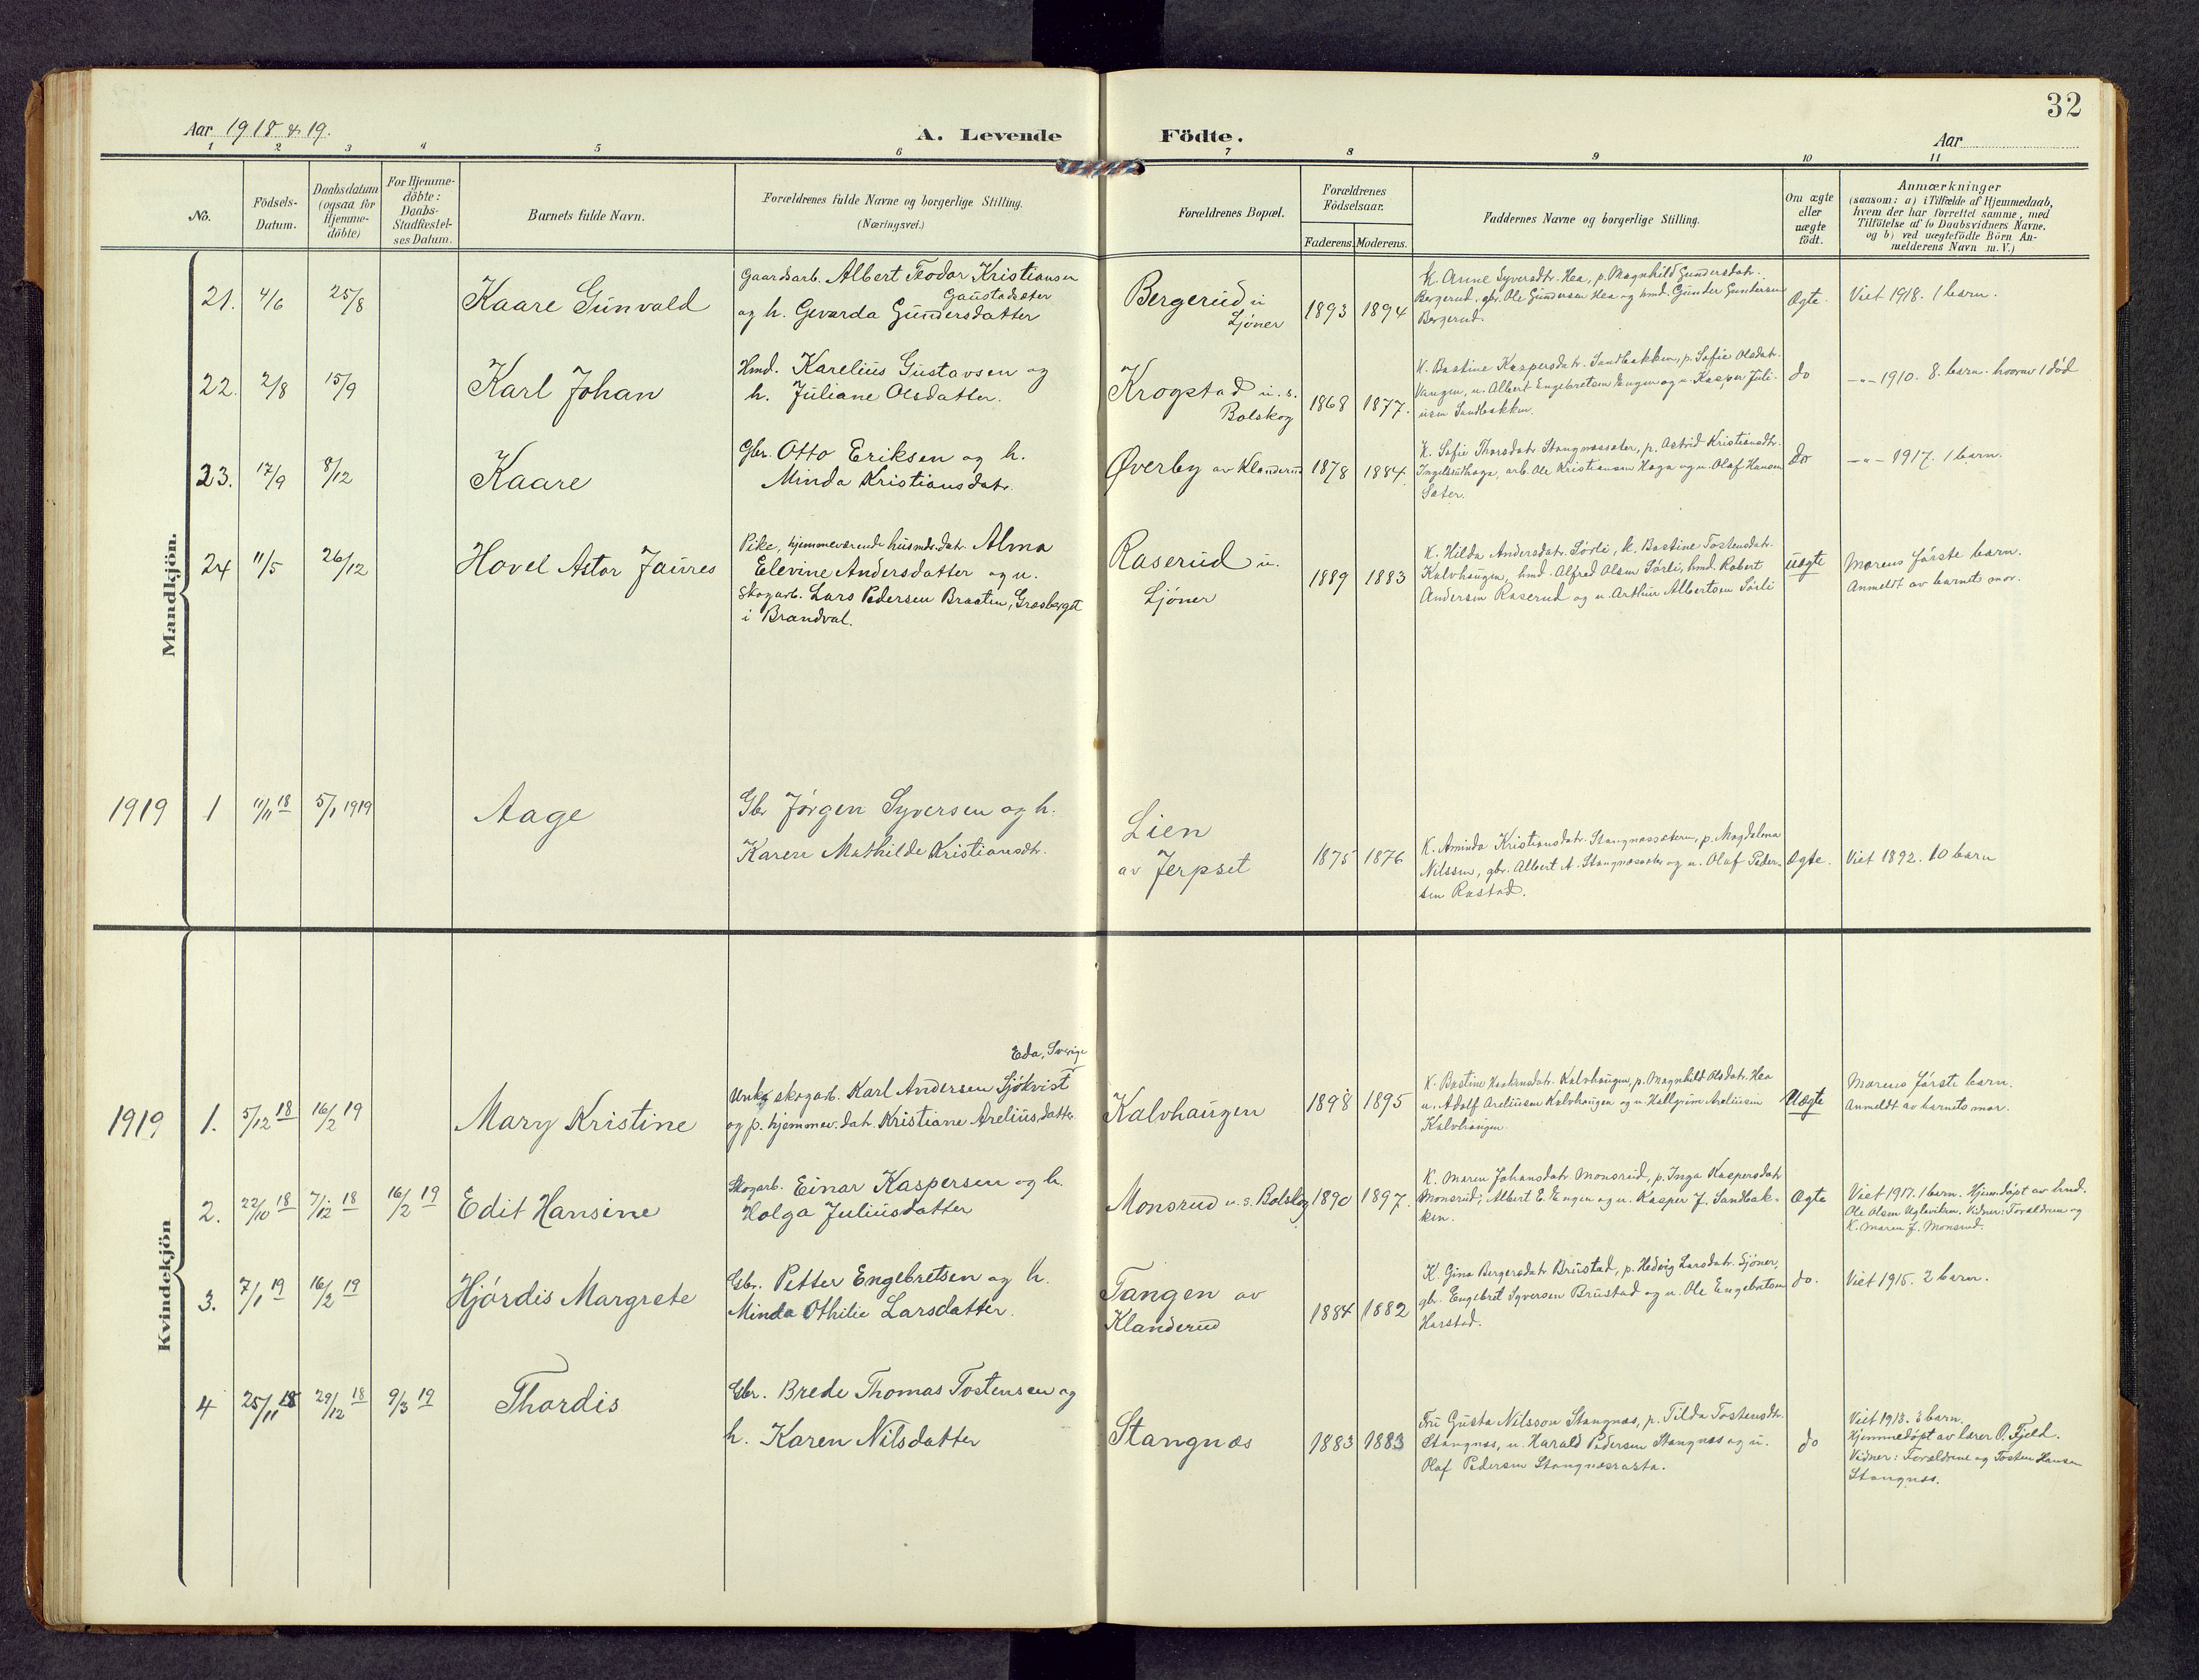 32
Aar 1918 & 19.
A. Levende Födte.
Aar
1 2 3 4 5 6 7 8 9 10 11
No.
Födsels-
Datum.
Daabsdatum
(ogsaa for
Hjemme-
döbte)
For Hjemme-
döbte:
Daabs-
Stadfæstel-
ses Datum.
Barnets fulde Navn.
Forældrenes fulde Navne og borgerlige Stilling.
(Næringsvei.)
Forældrenes Bopæl.
Forældrenes
Födselsaar.
Faderens.
Moderens.
Faddernes Navne og borgerlige Stilling.
Om ægte
eller
uægte
födt.
Anmærkninger
(saasom: a) i Tilfælde af Hjemmedaab,
hvem der har forrettet samme, med
Tilföielse af to Daabsvidners Navne,
og b) ved uægtefödte Börn An-
melderens Navn m. V.)
Mandkjön.
21. 4/6 25/8
Kaare Gunvald
Gaardsarb. Albert Teodor Kristiansen
Gaustadsæter
og h. Gevarda Gundersdatter
Bergerud u
Sjöner
1893 1894
K. Anne Syversdtr. Hea, p. Magnhild Gundersdatr.
Bergerud, gbr. Ole Gundersen Hea og hmd. Gunder Gundersen
Bergerud.
Ægte.
Viet 1918. 1 barn.
22. 2/8 15/9
Karl Johan
Hmd. Karelius Gustavsen og
h. Juliane Olsdatter.
Krogstad u. s.
Bolskog
1868 1877.
K. Bastine Kaspersdatr. Sandbakken, p. Sofie Olsdatr.
Vangen, u. Albert Engebretsen Engen og u. Kasper Juli-
usen Sandbakken.
do
-"- 1910. 8. barn. hvorav 1 död
23. 17/9 8/12
Kaare
Gbr. Otto Eriksen og h.
Minda Kristiansdatr.
Øverby av Klanderud
1878 1884.
K. Sofie Thorsdatr. Stangnæssæter, p. Astrid Kristiansdtr.
Ingelsrudhaga, arb. Ole Kristiansen Haga og u. Olaf Hansen
Sæter.
do
-"- 1917. 1 barn.
24 11/5 26/12
Hovel Astor Jaures
Pike, hjemmeværende husmds.datr. Alma
Elevine Andersdatter og u.
skogarb. Lars Pedersen Braaten, Grasberget
i Brandval.
Raserud u.
Sjöner
1889 1883
K. Hilda Andersdatr. Sörli, k. Bastine Tostensdatr.
Kalvhaugen, hmd. Alfred Olsen Sörli, hmd. Robert
Andersen Raserud og u. Arthur Albertsen Sörli
uægte
Morens förste barn.
Anmeldt av barnets mor.
1919 1 11/11 18 5/1 1919
Aage
Gbr Jörgen Syversen og h.
Karen Mathilde Kristiansdtr.
Lien
av Jerpset
1875 1876
K. Aminda Kristiansdatr. Stangnæssæteren, p. Magdalena
Nilssen, gbr. Albert A. Stangnæssæter og u. Olaf Peder-
sen Rastad.
Ægte.
Viet 1892. 10 barn
Kvindekjön
1919 1. 5/12 18 16/2 19
Mary Kristine
Eda, Sverige
Unkf skogarb. Karl Andersen Sjökvist
og p. hjemmev. datr. Kristiane Areliusdatter
Kalvhaugen
1898 1895
K. Bastine Kalvhaugen, p. Magnhild Olsdatr. Hea
u. Adolf Areliusen Kalvhaugen og u. Hallgrim Areliusen
Kalvhaugen.
Uægte
Morens förste barn.
Anmeldt av barnets mor.
2. 22/10 18 7/12 18 16/2 19
Edit Hansine
Skogarb. Einar Kaspersen og h.
Helga Juliusdatter
Monsrud u. s. Bolskog
1890 1897.
K. Maren Johansdatr. Monsrud, p. Inga Kaspersdatr
Monsrud; Albert E. Engen og u. Kasper J. Sandbak-
ken.
Ægte
Viet 1917. 1 barn. Hjem.döpt av hmd.
Ole Olsen Ugleviken. Vidner: Forældrene og
K. Maren J. Monsrud.
3. 7/1 19 16/2 19
Hjördis Margrete
Gbr. Petter Engebretsen og h.
Minda Othilie Larsdatter.
Tangen av
Klanderud
1884 1882
K. Gina Bergersdatr. Brustad, p. Hedvig Larsdatr. Sjöner,
gbr. Engebret Syversen Brustad og u. Ole Engebretsen
Harstad.
do.
Viet 1915. 2 barn.
4 25/11 18 29/12 18 9/3 19
Thordis
Gbr. Brede Thomas Tostensen og
h. Karen Nilsdatter
Stangnæs
1883 1883
Fru Gusta Nilsson Stangnæs, p. Tilda Tostensdtr.
Stangnæs, u. Harald Pedersen Stangnæs og u.
Olaf Pedersen Stangnæsrasta.
do
Viet 1913. 3 barn.
Hjemmedöpt av lærer O. Fjeld.
Vidner: Forældrene og Tosten Hansen
Stangnæs.